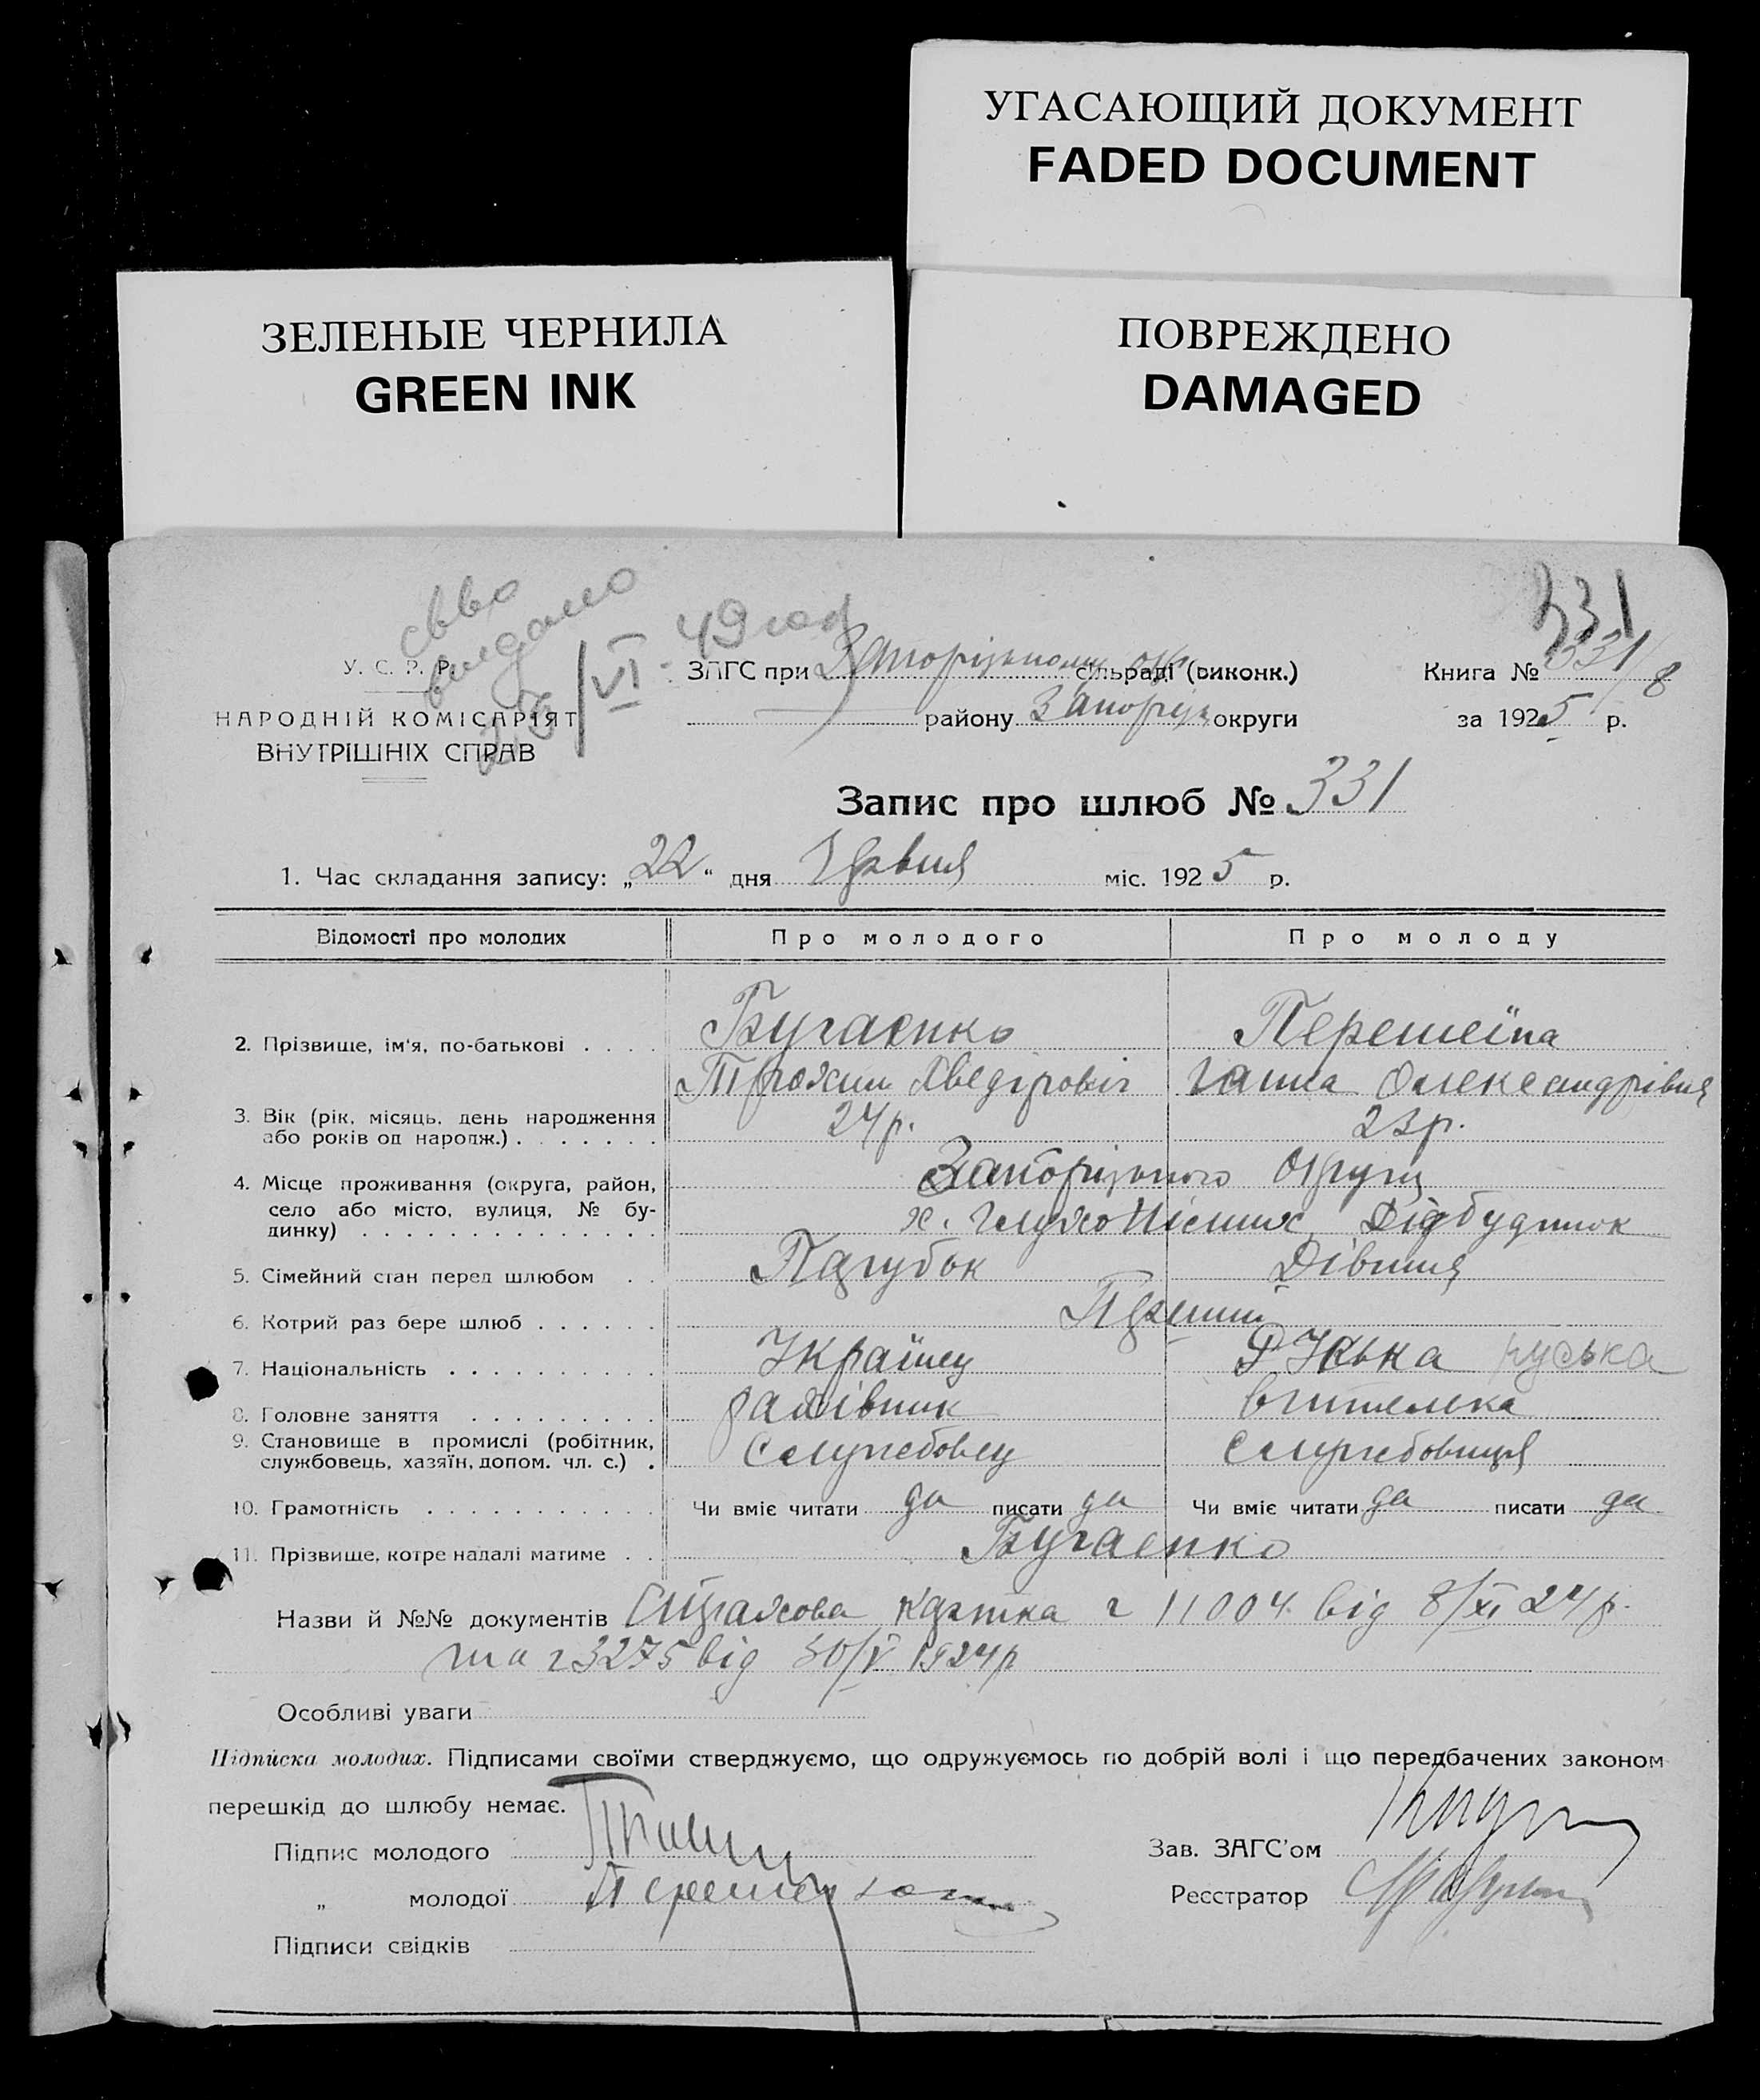 УГАСАЮЩИЙ ДОКУМЕНТ
FADED DOCUMENT
ЗЕЛЕНЫЕ ЧЕРНИЛА
GREEN INK
ПОВРЕЖДЕНО
DAMAGED
331
видано
/VI - 49 год
У. С. Р. Р.
НАРОДНІЙ КОМІСАРІЯТ
ВНУТРІШНІХ СПРАВ
ЗАГС при Запорізькому окр сільраді (виконк.)
району Запоріз округи
Книга № 331/8
за 1925 р.
Запис про шлюб № 331
1. Час складання запису: „22“ дня Червня міс. 1925 р.
Відомості про молодих Про молодого Про молоду
2. Прізвище, ім'я, по-батькові . . . . Бугаєнко
Трохим Хведірович
Ганна Олександрівна
3. Вік (рік, місяць, день народження
або років од народж.) . . . . . . . 24 р. 23 р.
4. Місце проживання (округа, район,
село або місто, вулиця, № бу-
динку) . . . . . . . . . . . . . .
Запорізького округи
5. Сімейний стан перед шлюбом . . Парубок Дівчина
6. Котрий раз бере шлюб . . . . . . Перший
7. Національність . . . . . . . . . . Українец руська
8. Головне заняття . . . . . . . . . вчителька
9. Становище в промислі (робітник,
службовець, хазяїн, допом. чл. с.) . Служебовец Служебовиця
10. Грамотність . . . . . . . . . . . Чи вміє читати да писати да Чи вміє читати да писати да
11. Прізвище, котре надалі матиме . . Бугаєнко
Назви й №№ документів Страхова картка ч 11004 від 8/XI 24 р.
та ч 3275 від 30/V 1924 р
Особливі уваги
Підписка молодих. Підписами своїми стверджуємо, що одружуємось по добрій волі і що передбачених законом
перешкід до шлюбу немає.
Підпис молодого
„ молодої
Підписи свідків
Зав. ЗАГС'ом
Реєстратор